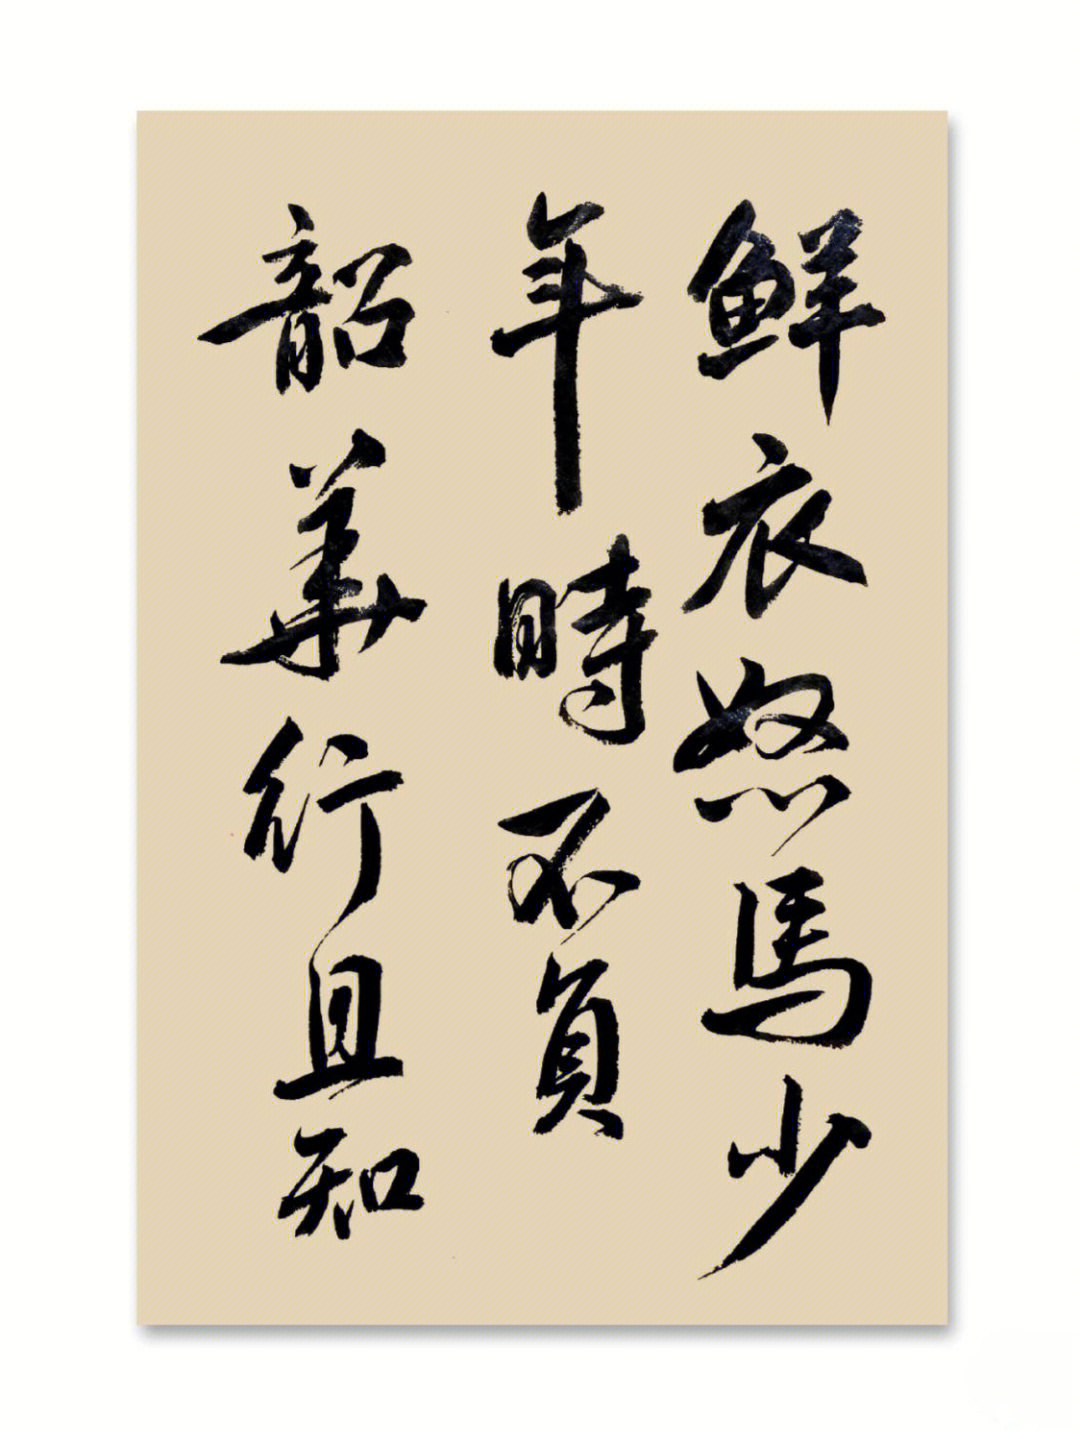 鮮衣怒馬少
年時不負
韶華行且知